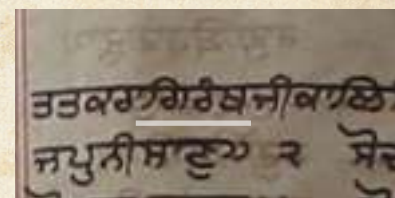 ਤਤਕਰਾਗਿਰੰਥਜੀਕਾਲਿ
ਜਪੁਨੀਸਾਣੁ ੨ ਸੋਦ